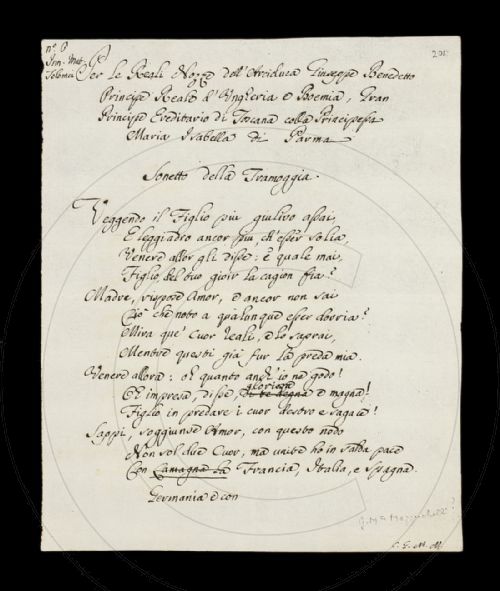 n.º 6
Inn. Mat.
Tolomei
205
Per le Reali Nozze dell'Arciduca Giuseppe Benedetto
Principe Reale d'Ungheria e Boemia, Gran
Principe Ereditario di Toscana colla Principessa
Maria Isabella di Parma
Sonetto della Tramoggia.
Veggendo il Figlio più giulivo assai,
E leggiadro ancor più, ch'esser solia,
Venere allor gli disse: e quale mai,
Figlio, del tuo gioir la cagion fia?
Madre, rispose Amor, e ancor non sai
Ciò che noto a qualonque esser dovria?
Mira que' Cuor reali, e lo saprai,
Mentre questi già fur la preda mia.
Venere allora: oh quanto anch'io ne godo!
gloriosa
Oh impresa, disse, di te degna e magna!
Figlio in predare i cuor destro e sagace!
Sappi, soggiunse Amor, con questo nodo
Non sol due Cuor, ma unite ho in salda pace
Con Lamagna la Francia, Italia, e Spagna.
Germania e con
G. Mª Mazzuchelli?
C. G. M. M.